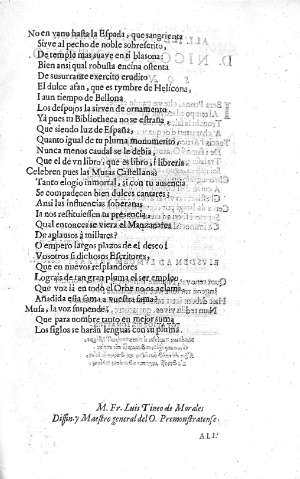 No en vano hasta la Espada, que sangrienta
Sirve al pecho de noble sobrescrito,
De temple mas suave en ti blasona:
Bien ansi qual robusta encina ostenta
De susurrante exercito erudito
El dulce afan, que es tymbre de Helicona,
I aun tiempo de Bellona
Los despojos la sirven de ornamento.
Yà pues tu Bibliotheca no se estraña,
Que siendo luz de España,
Quanto igual de tu pluma monumento,
Nunca menos caudal se le debia,
Que el de vn libro, que es libro, i libreria.
Celebren pues las Musas Castellanas
Tanto elogio inmortal, si con tu ausencia
Se compadecen bien dulces cantares;
Ansi las influencias soberanas
Ia nos restituiessen tu presencia,
Qual entonces se viera el Manzanares
De aplausos à millares?
O empero largos plazos de el deseo!
Vosotros si dichosos Escritores,
Que en nuevos resplandores
Lograis de tan gran pluma el ser empleo,
Que voz ai en todo el Orbe no os aclama,
Añadida esta fama a vuestra fama?
Musa, la voz suspende,
Que para nombre tanto en mejor suma
Los siglos se harán lenguas con su pluma.
M. Fr. Luis Tineo de Morales
Difin. y Maestro general del O. Premonstratense.
ALL